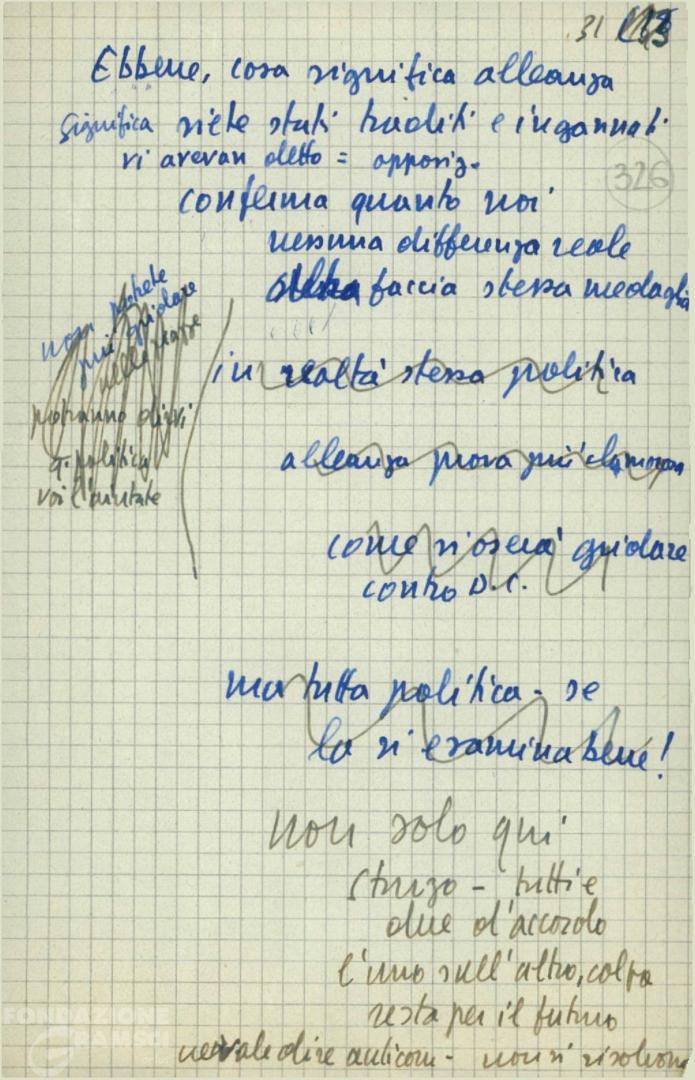 31
Ebbene, cosa significa alleanza
Significa siete stati traditi e ingannati
vi avevan detto = opposiz.
326
conferma quanto noi
nessuna differenza reale
altra faccia stessa medaglia
non potete
più guidare
nelle piazze
potranno dirvi
q. politica
voi l'aiutate
in realtà stessa politica
alleanza prova più clamorosa
come si oserà guidare
contro D.C.
ma tutta politica - se
la si esamina bene!
non solo qui
Sturzo - tutti e
due d'accordo
l'uno sull'altro, colpa
resta per il futuro
vale dire anticom - non si risolvono
FONDAZIONE
GRAMSCI